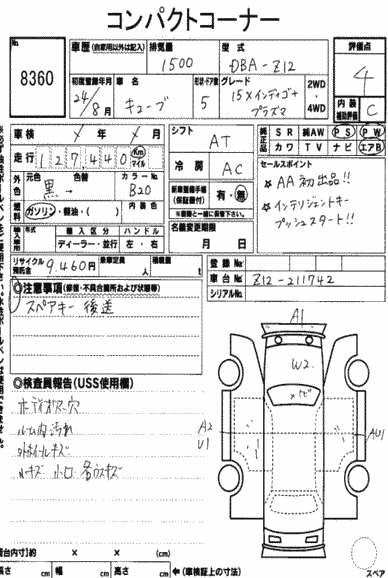 コンパクトコーナー
No. 8360
車歴(自家用以外は記入) 排気量 1500 型式 DBA-Z12 評価点 4
初度登録年月 24/8月 車名 キューブ 形状・ドア数 5 グレード 15X インディゴ+プラズマ 2WD・4WD 内装補助評価 C
車検 年 月 シフト AT 純正品 SR 純AW PS PW
カワ TV ナビ エアB
走行 127440 Km マイル 冷房 AC
セールスポイント
外色 元色 黒→ 色替 カラーNo. B20
☆AA初出品!!
新車整備手帳(保証書付) 有・無
※書類と一緒に保管下さい。
☆インテリジェントキー
プッシュスタート!!
燃料 ガソリン・軽油・( ) 内装色
名義変更期限 月 日
輸入車 年式 輸入区分 ディーラー・並行 ハンドル 左・右
リサイクル預託金 9,460円 乗車定員 人 積載量 t
登録No.
車台No. Z12-211742
シリアルNo.
◎注意事項(修復・不具合箇所および状態等)
スペアキー 後送
A1
W2
ナビ
A2
U1
AU1
◎検査員報告(USS使用欄)
ルーム内汚れ
小口 各ウスキズ
荷台内寸)約 × × (cm)
長さ cm 幅 cm 高さ cm ←(車検証上の寸法)
スペア